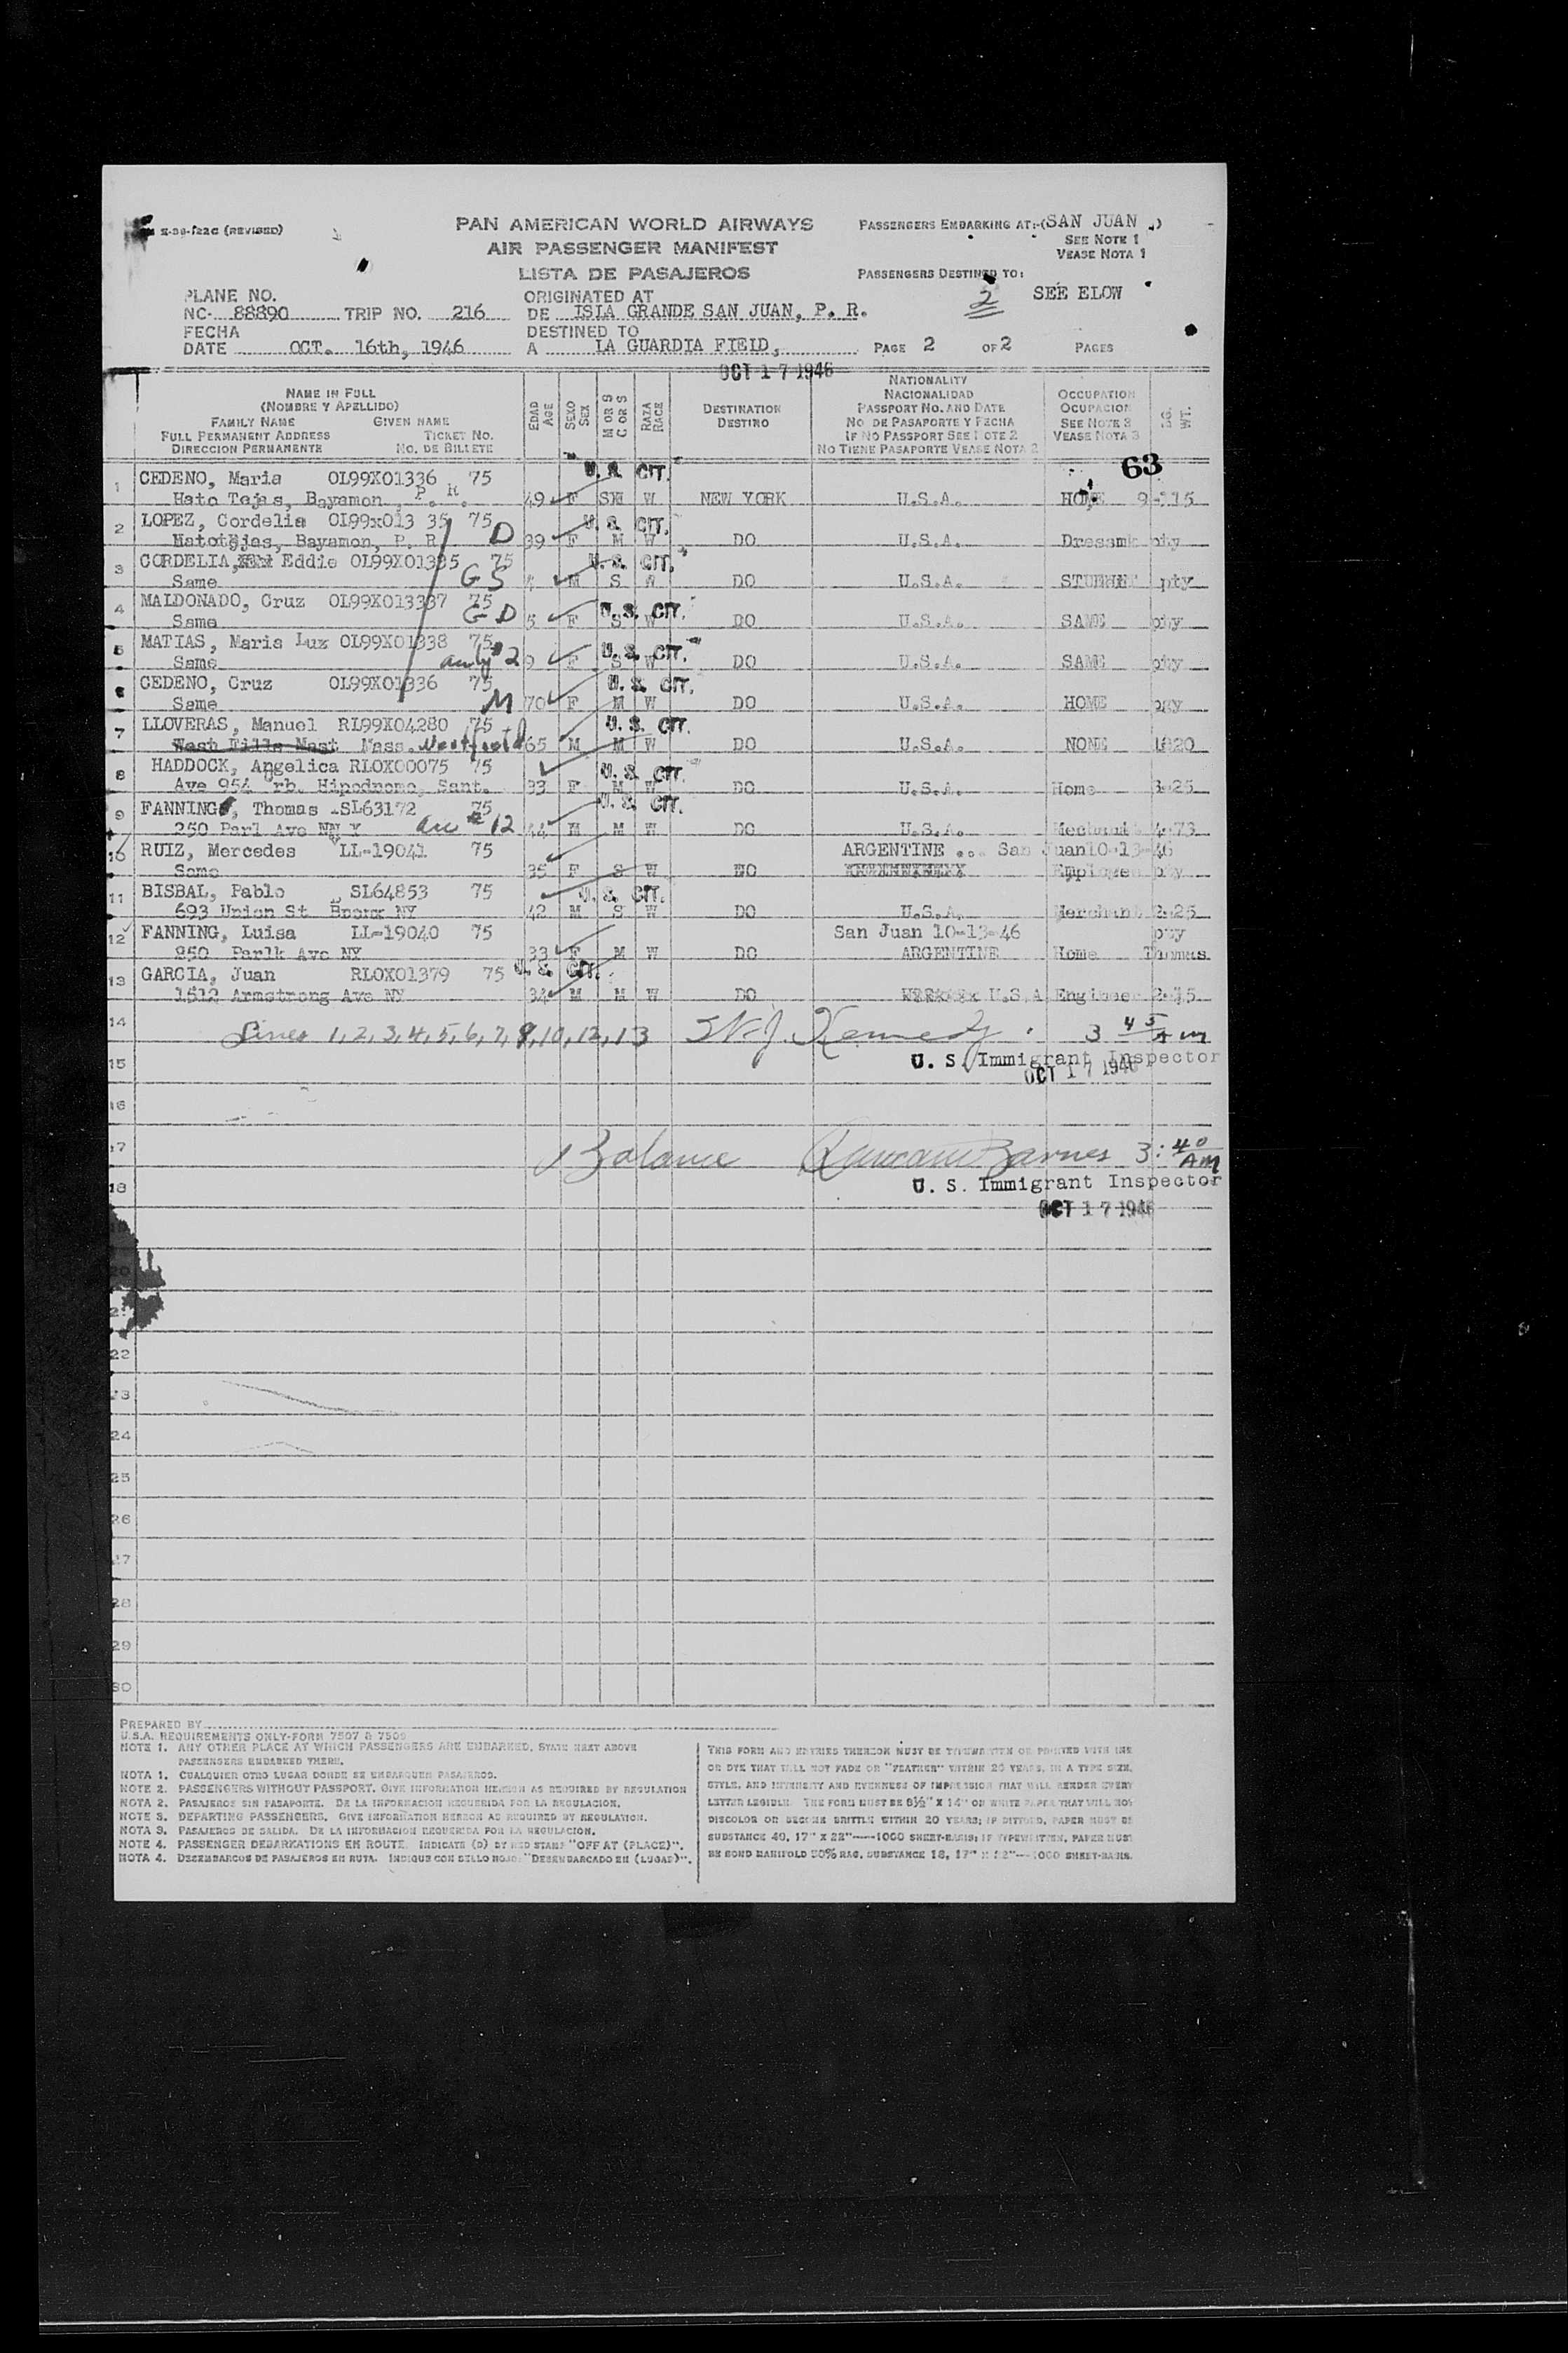 E-39-122C (REVISED)
PAN AMERICAN WORLD AIRWAYS
AIR PASSENGER MANIFEST
LISTA DE PASAJEROS
PASSENGERS EMBARKING AT:-(SAN JUAN .)
SEE NOTE 1
VEASE NOTA 1
PASSENGERS DESTINED TO:
2 SEE ELOW
PLANE NO.
NC- 88890 TRIP NO. 216
ORIGINATED AT
DE ISLA GRANDE SAN JUAN, P. R.
FECHA
DATE OCT. 16th, 1946
DESTINED TO
A LA GUARDIA FIELD,
PAGE 2 OF 2 PAGES
OCT 17 1946
NAME IN FULL
(NOMBRE Y APELLIDO)
FAMILY NAME GIVEN NAME
FULL PERMANENT ADDRESS TICKET NO.
DIRECCION PERMANENTE NO. DE BILLETE
EDAD AGE
SEXO SEX
M OR S C OR S
RAZA RACE
DESTINATION
DESTINO
NATIONALITY
NACIONALIDAD
PASSPORT NO. AND DATE
NO. DE PASAPORTE Y FECHA
IF NO PASSPORT SEE NOTE 2
NO TIENE PASAPORTE VEASE NOTA 2
OCCUPATION
OCUPACION
SEE NOTE 3
VEASE NOTA 3
WT.
63
1 CEDENO, Maria OL99X01336 75 U. S. CIT.
Hato Tejas, Bayamon, P. R. 49 F W NEW YORK U.S.A. HOME
2 LOPEZ, Cordelia OL99x013 35 75 D U. S. CIT.
Hatotejas, Bayamon, P. R 39 F M W DO U.S.A.
3 CORDELIA, Eddie OL99X01335 75 G S U. S. CIT.
Same M S W DO U.S.A. STUDENT pty
4 MALDONADO, Cruz OL99X013337 75 G D U. S. CIT.
Same 5 F S W DO U.S.A. SAME
5 MATIAS, Maria Luz OL99X01338 75 U. S. CIT.
Same 9 F S W DO U.S.A. SAME
6 CEDENO, Cruz OL99X01336 75 M U. S. CIT.
Same 70 F M W DO U.S.A. HOME
7 LLOVERAS, Manuel RL99X04280 75 U. S. CIT.
Mass. Westfield 65 M M W DO U.S.A. NONE
8 HADDOCK, Angelica RLOX00075 75 U. S. CIT.
Ave 954 rb. Hipodromo, Sant. 33 F M W DO U.S.A. Home
9 FANNING, Thomas SL63172 75 U. S. CIT.
250 Parl Ave NN Y 44 M M W DO U.S.A.
10 RUIZ, Mercedes LL-19041 75 ARGENTINE ... San Juan10-13-46
Same 35 F S W DO Employee
11 BISBAL, Pablo SL64853 75 U. S. CIT.
693 Union St Bronx NY 42 M S W DO U.S.A. Merchant 2-25
12 FANNING, Luisa LL-19040 75 San Juan 10-13-46
250 Parlk Ave NY 33 F M W DO ARGENTINE Home Thomas
13 GARCIA, Juan RLOX01379 75 U. S. CIT.
1512 Armstrong Ave NY 34 M M W DO U.S.A Engineer
14 Lines 1,2,3,4,5,6,7,9,10,12,13 Kennedy 3 45 Am
15 U. S. Immigrant Inspector
OCT 17 1946
16
17 Balance Barnes 3:40 AM
18 U. S. Immigrant Inspector
OCT 17 1946
20
22
23
24
25
26
27
28
29
30
PREPARED BY
U.S.A. REQUIREMENTS ONLY-FORM 7507 & 7509
NOTE 1. ANY OTHER PLACE AT WHICH PASSENGERS ARE EMBARKED, STATE NEXT ABOVE
PASSENGERS EMBARKED THERE.
NOTA 1. CUALQUIER OTRO LUGAR DONDE SE EMBARQUEN PASAJEROS.
NOTE 2. PASSENGERS WITHOUT PASSPORT. GIVE INFORMATION HEREON AS REQUIRED BY REGULATION
NOTA 2. PASAJEROS SIN PASAPORTE. DE LA INFORMACION REQUERIDA POR LA REGULACION.
NOTE 3. DEPARTING PASSENGERS. GIVE INFORMATION HEREON AS REQUIRED BY REGULATION.
NOTA 3. PASAJEROS DE SALIDA. DE LA INFORMACION REQUERIDA POR LA REGULACION.
NOTE 4. PASSENGER DEBARKATIONS EN ROUTE. INDICATE (D) BY RED STAMP "OFF AT (PLACE)".
NOTA 4. DESEMBARCOS DE PASAJEROS EN RUTA. INDIQUE CON SELLO ROJO: "DESEMBARCADO EN (LUGAR)".
THIS FORM AND ENTRIES THEREON MUST BE TYPEWRITTEN OR PRINTED WITH INK
OR DYE THAT WILL NOT FADE OR "FEATHER" WITHIN 20 YEARS, IN A TYPE SIZE,
STYLE, AND INTENSITY AND EVENNESS OF IMPRESSION THAT WILL RENDER EVERY
LETTER LEGIBLE. THE FORM MUST BE 8½" X 14" ON WHITE PAPER THAT WILL NOT
DISCOLOR OR BECOME BRITTLE WITHIN 20 YEARS; IF DITTOED, PAPER MUST BE
SUBSTANCE 40, 17" X 22"——1000 SHEET-BASIS; IF TYPEWRITTEN, PAPER MUST
BE BOND MANIFOLD 50% RAG, SUBSTANCE 18, 17" X 22"——1000 SHEET-BASIS.